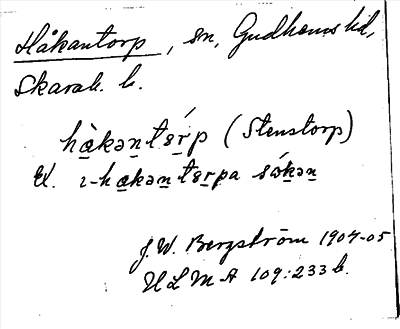 Håkantorp, sn, Gudhems hd,
Skarab. l.
hàkəntɛ́rp (Stenstorp)
Ex. ı-hakəntɛrpa sɷ́kən
J. W. Bergström 1904-05
ULMA 109:233 b.